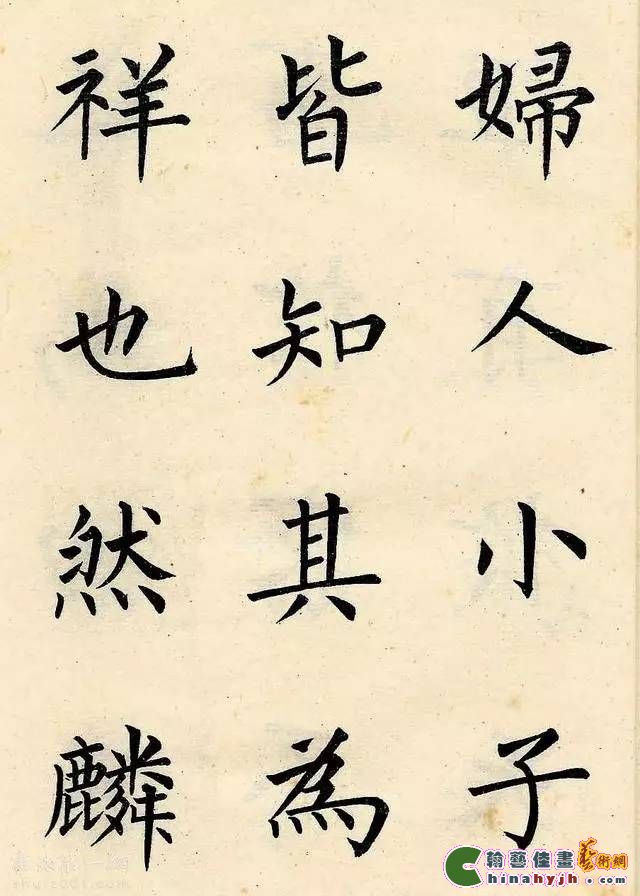 婦人小子
皆知其為
祥也然麟
翰藝佳畫藝術網
Chinahyjh.com